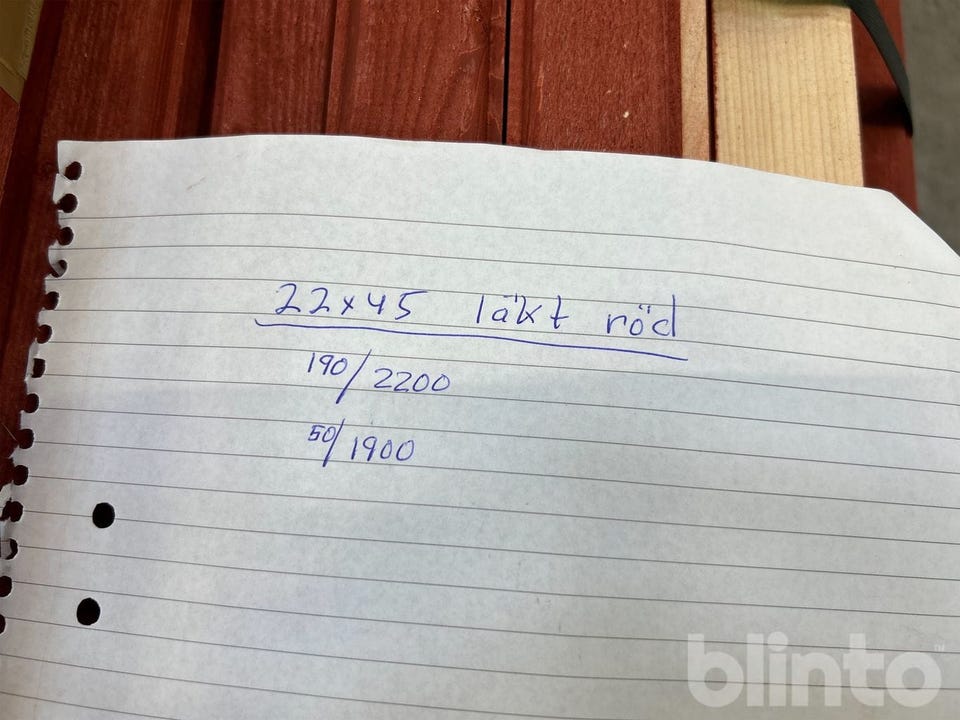 22x45 läkt röd
190/2200
50/1900
blinto™